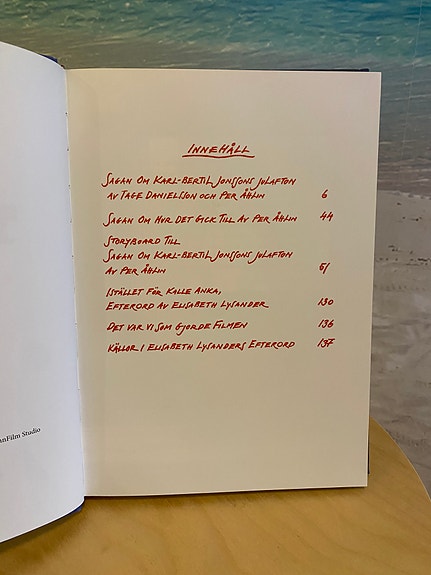 INNEHÅLL
SAGAN OM KARL-BERTIL JONSSONS JULAFTON
AV TAGE DANIELSSON OCH PER ÅHLIN 6
SAGAN OM HUR DET GICK TILL AV PER ÅHLIN 44
STORYBOARD TILL
SAGAN OM KARL-BERTIL JONSSONS JULAFTON
AV PER ÅHLIN 51
ISTÄLLET FÖR KALLE ANKA,
EFTERORD AV ELISABETH LYSANDER 130
DET VAR VI SOM GJORDE FILMEN 136
KÄLLOR I ELISABETH LYSANDERS EFTERORD 137
Film Studio